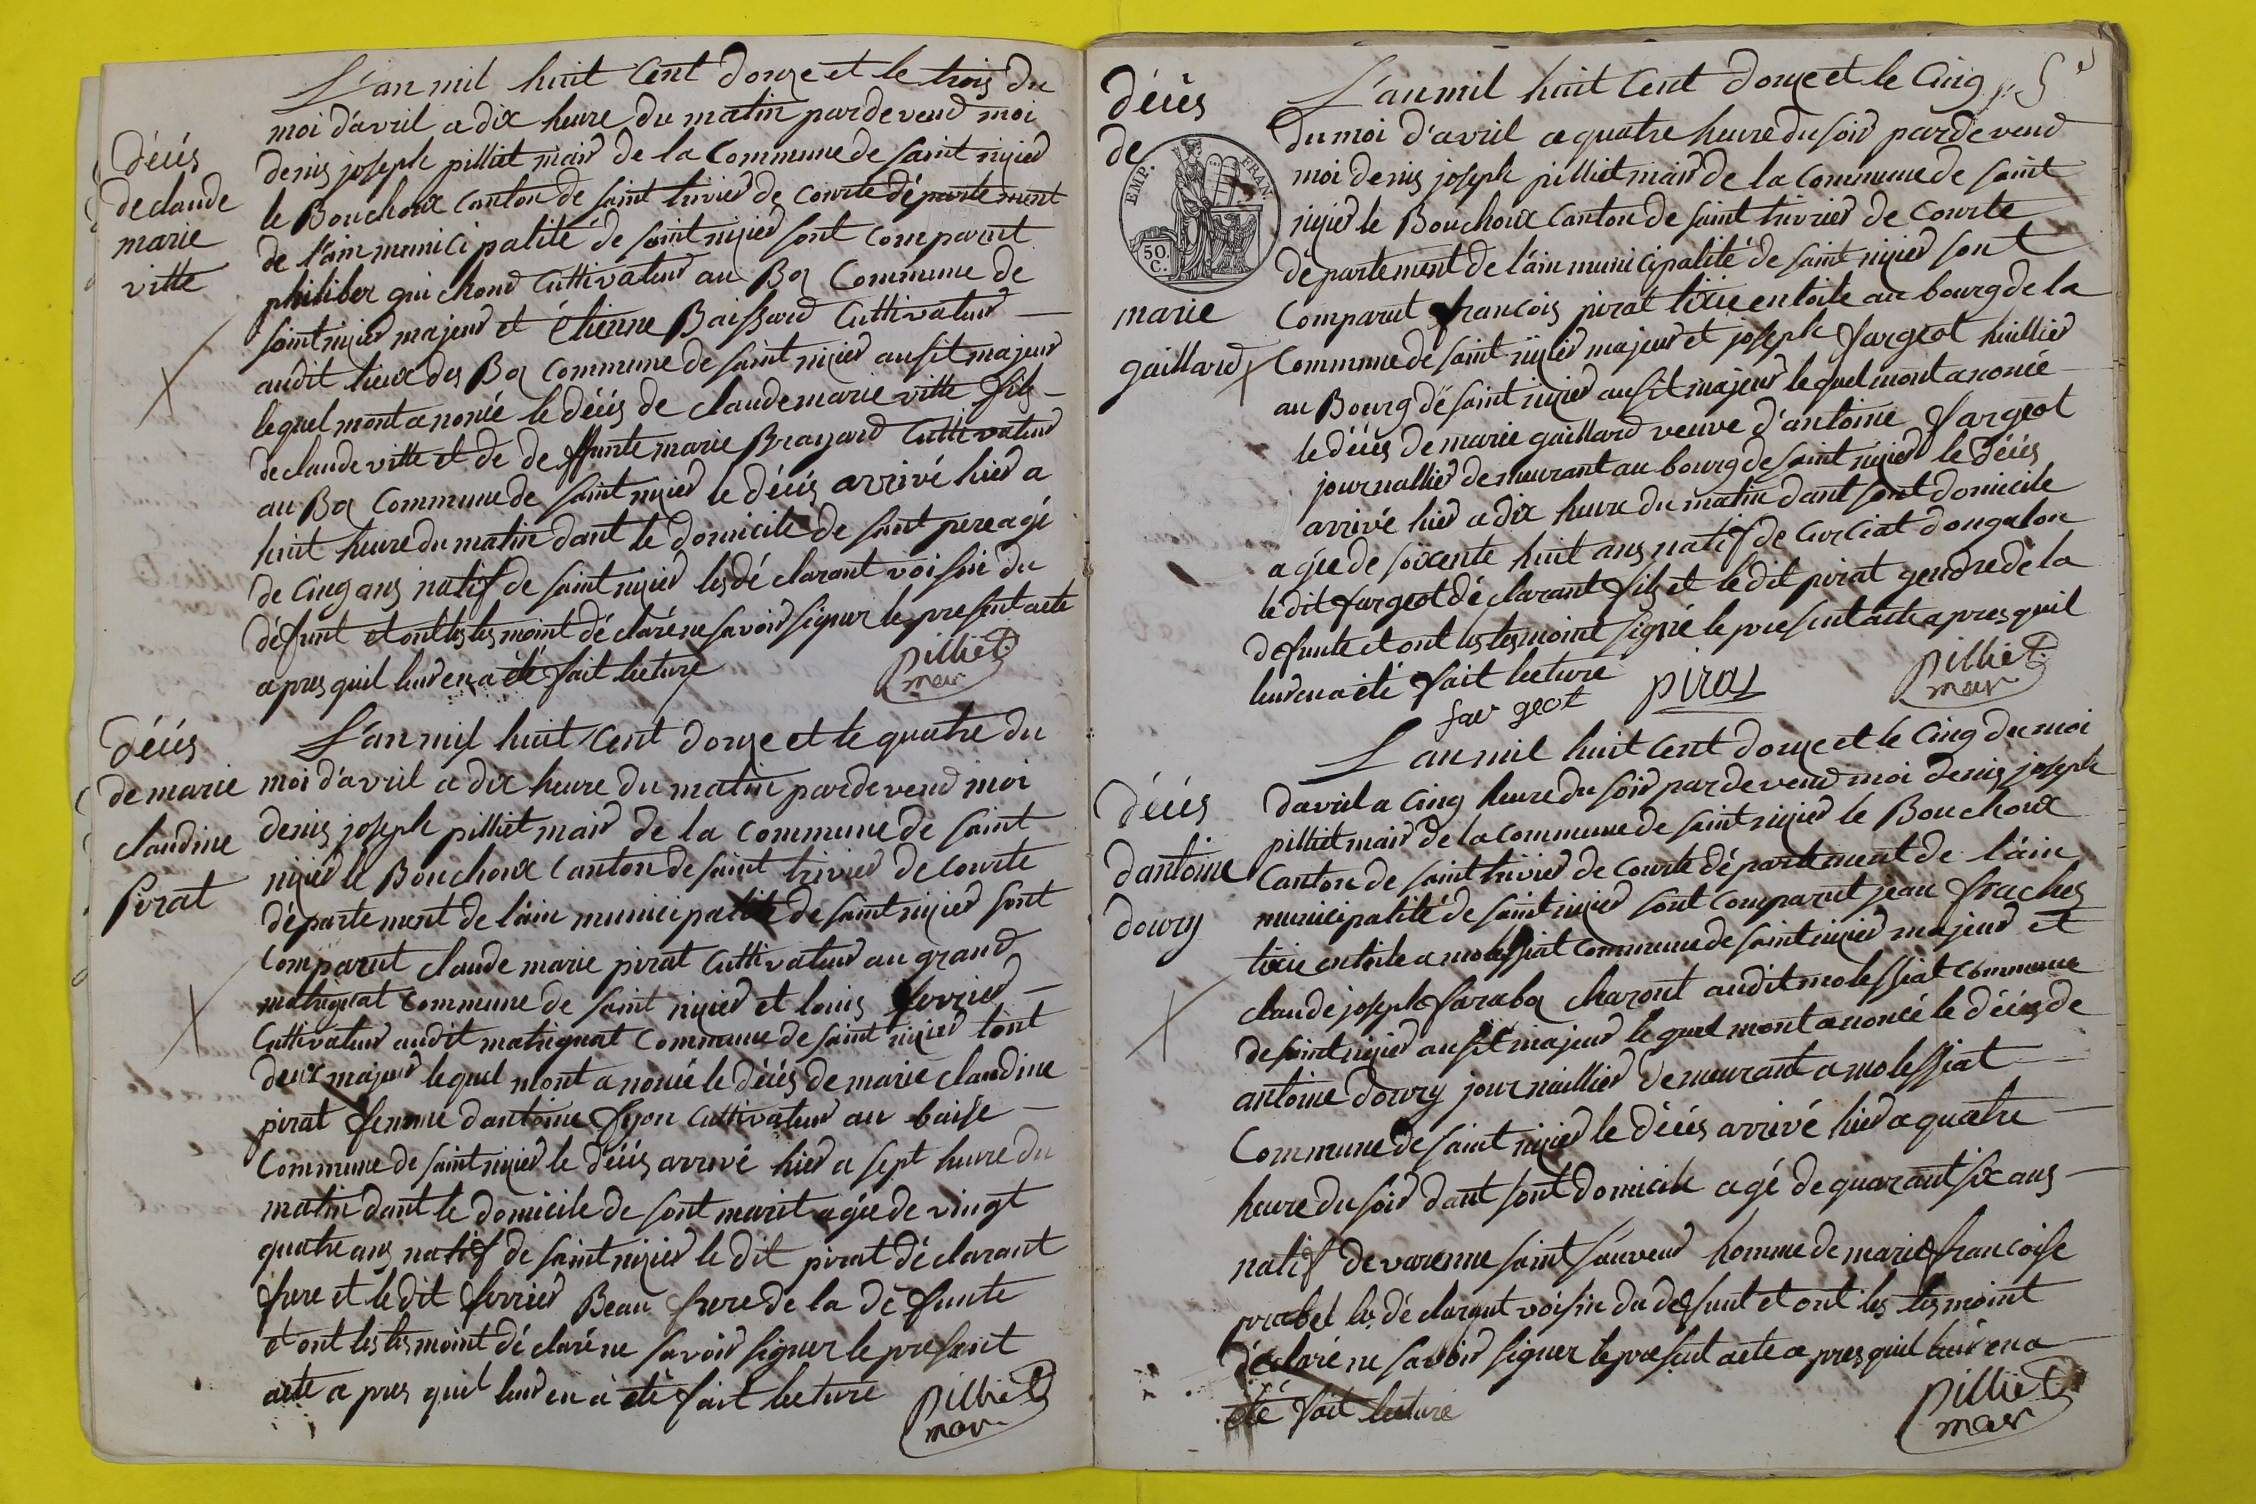 L'an mil huit Cent douze et le trois du
moi d'avril a dix heure du matin pardevend moi
denis joseph pilliet mair de la Commune de saint nizier
le Bouchoux Canton de saint trivier de Courte département
de l'ain municipalité de saint nizier sont comparut
philiber guichond Cuttivateur au Bos Commune de
saint nizier majeur et étienne Baissard Cuttivateur
audit lieux des Bos Commune de saint nizier aussit majeur
lequel mont anoncé le décés de claude marie ville fils
de claude ville et de deffunte marie Brazard Cuttivateur
au Bos Commune de saint nizier le décés arrivé hier a
huit heure du matin dant le domicile de sont pere agé
de Cinq ans natif de saint nizier les déclarant voisin du
défunt et ont les tesmoint déclaré ne savoir signer le present acte
apres quil leur en a été fait lecture
pilliet
mair
décés
de claude
marie
ville
L'an mil huit Cent douze et le quatre du
moi d'avril a dix heure du matin pardevend moi
denis joseph pilliet mair de la Commune de saint
nizier le Bouchoux Canton de saint trivier de Courte
département de l'ain municipalité de saint nizier sont
Comparut claude marie pirat Cuttivateur au grand
matignat Commune de saint nizier et louis ferrier
Cuttivateur audit matignat Commune de saint nizier tout
deux majeur lequel mont anoncé le décés de marie claudine
pirat femme dantoine fyon Cuttivateur au baise
Commune de saint nizier le décés arrivé hier a sept heure du
matin dant le domicile de sont marit agée de vingt
quatre ans natif de saint nizier le dit pirat déclarant
frere et le dit ferrier Beau frere de la défunte
et ont les tesmoint déclaré ne savoir signer le present
acte apres quil leur en a été fait lecture
pilliet
mair
décés
de marie
claudine
Pirat
L'an mil huit Cent douze et le Cinq
du moi d'avril a quatre heure du soir pardevend
moi denis joseph pilliet mair de la Commune de saint
nizier le Bouchoux Canton de saint trivier de Courte
département de l'ain municipalité de saint nizier sont
Comparut françois pirat tixie en toile au bourg de la
Commune de saint nizier majeur et joseph fargeot huillier
au Bourg de saint nizier aussit majeur lequel mont anoncé
le décés de marie gaillard veuve d'antoine fargeot
journallier demeurant au bourg de saint nizier le décés
arrivé hier a dix heure du matin dant sont domicile
agée de soixente huit ans natif de Curciat dongalon
le dit fargeot déclarant fils et le dit pirat gendre de la
defunte et ont les tesmoint signé le present acte apres quil
leur en a été fait lecture
fargeot pirat
pilliet
mair
décés
de
EMP. FRAN.
50
C.
marie
gaillard
L'an mil huit Cent douze et le Cinq du moi
davril a Cinq heure du soir pardevend moi denis joseph
pilliet mair de la Commune de saint nizier le Bouchoux
Canton de saint trivier de Courte département de l'ain
municipalité de saint nizier sont Comparut jean fraches
tixie en toile a molessiat Commune de saint nizier majeur et
claude joseph faraboz charont audit molessiat Commune
de saint nizier aussit majeur lequel mont anoncé le décés de
antoine doury journaillier demeurant a molessiat
Commune de saint nizier le décés arrivé hier a quatre
heure du soir dant sont domicile agé de quarant six ans
natif de varenne saint sauveur homme de marie françoise
prabel les déclarant voisin du défunt et ont les tesmoint
déclaré ne savoir signer le present acte apres quil leur en a
été fait lecture
pilliet
mair
décés
dantoine
doury